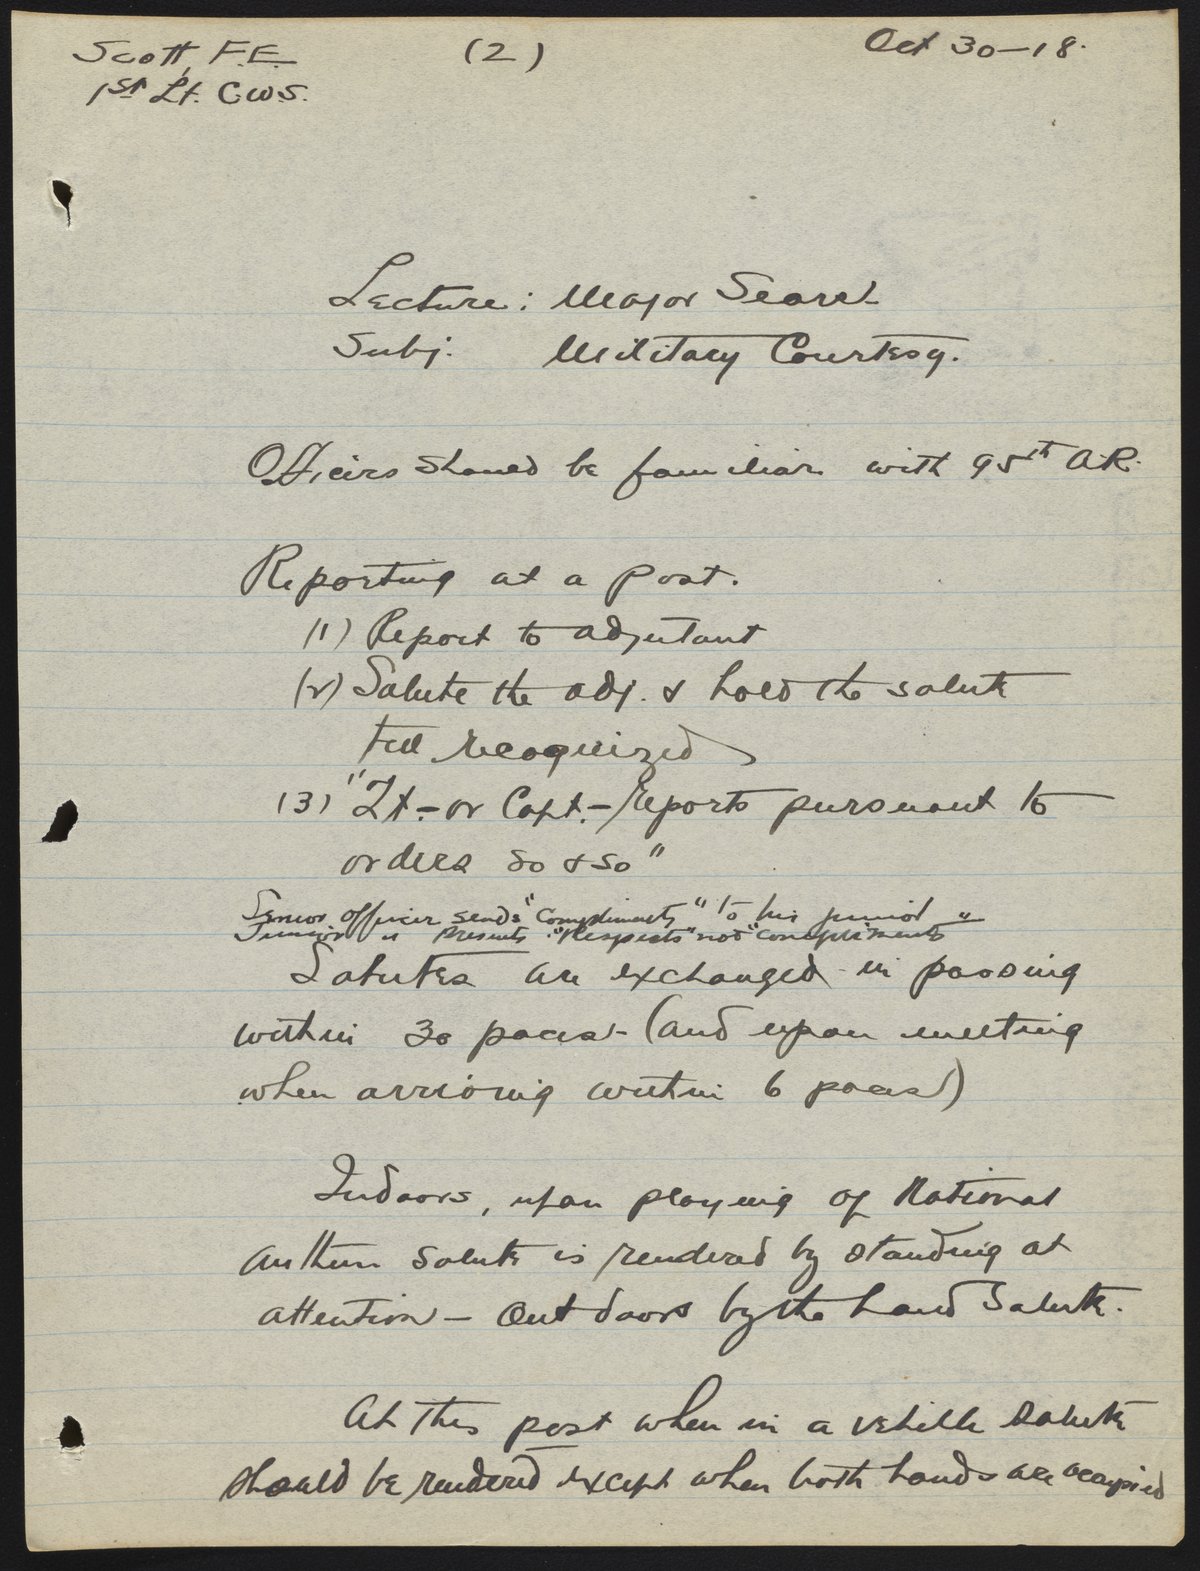 Scott, F.E. (2) Oct 30-18.
1st Lt. C.W.S.
Lecture: Major
Subj. Military Courtesy.
Officers should be familiar with 95th A.R.
Reporting at a post.
(1) Report to adjutant
(2) Salute the adj. & hold the salute
till recognized
(3) "Lt.- or Capt.- reports pursuant to
orders so & so"
Senior officer sends "Compliments" to his junior
Junior " presents "Respects" not "compliments"
Salutes are exchanged in passing
within 30 paces - (and upon meeting
when arriving within 6 paces)
Indoors, upon playing of National
Anthem salute is rendered by standing at
attention - Out doors by the hand salute.
At this post when in a vehicle salute
should be rendered except when both hands are occupied